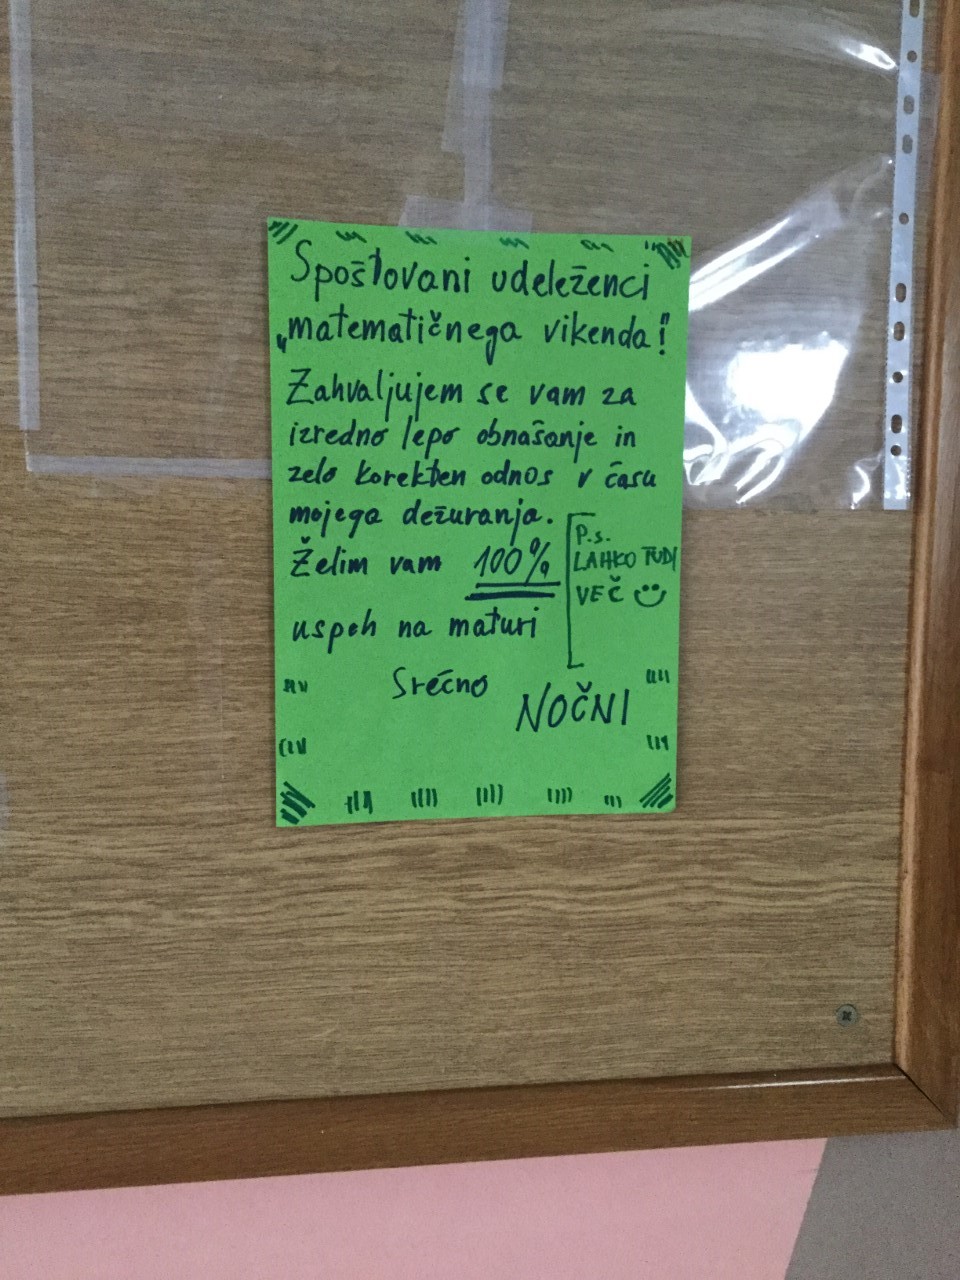 Spoštovani udeleženci
„matematičnega vikenda!"
Zahvaljujem se vam za
izredno lepo obnašanje in
zelo korekten odnos v času
mojega dežuranja.
Želim vam 100%
uspeh na maturi
P.s.
LAHKO TUDI
VEČ
Srečno
NOČNI